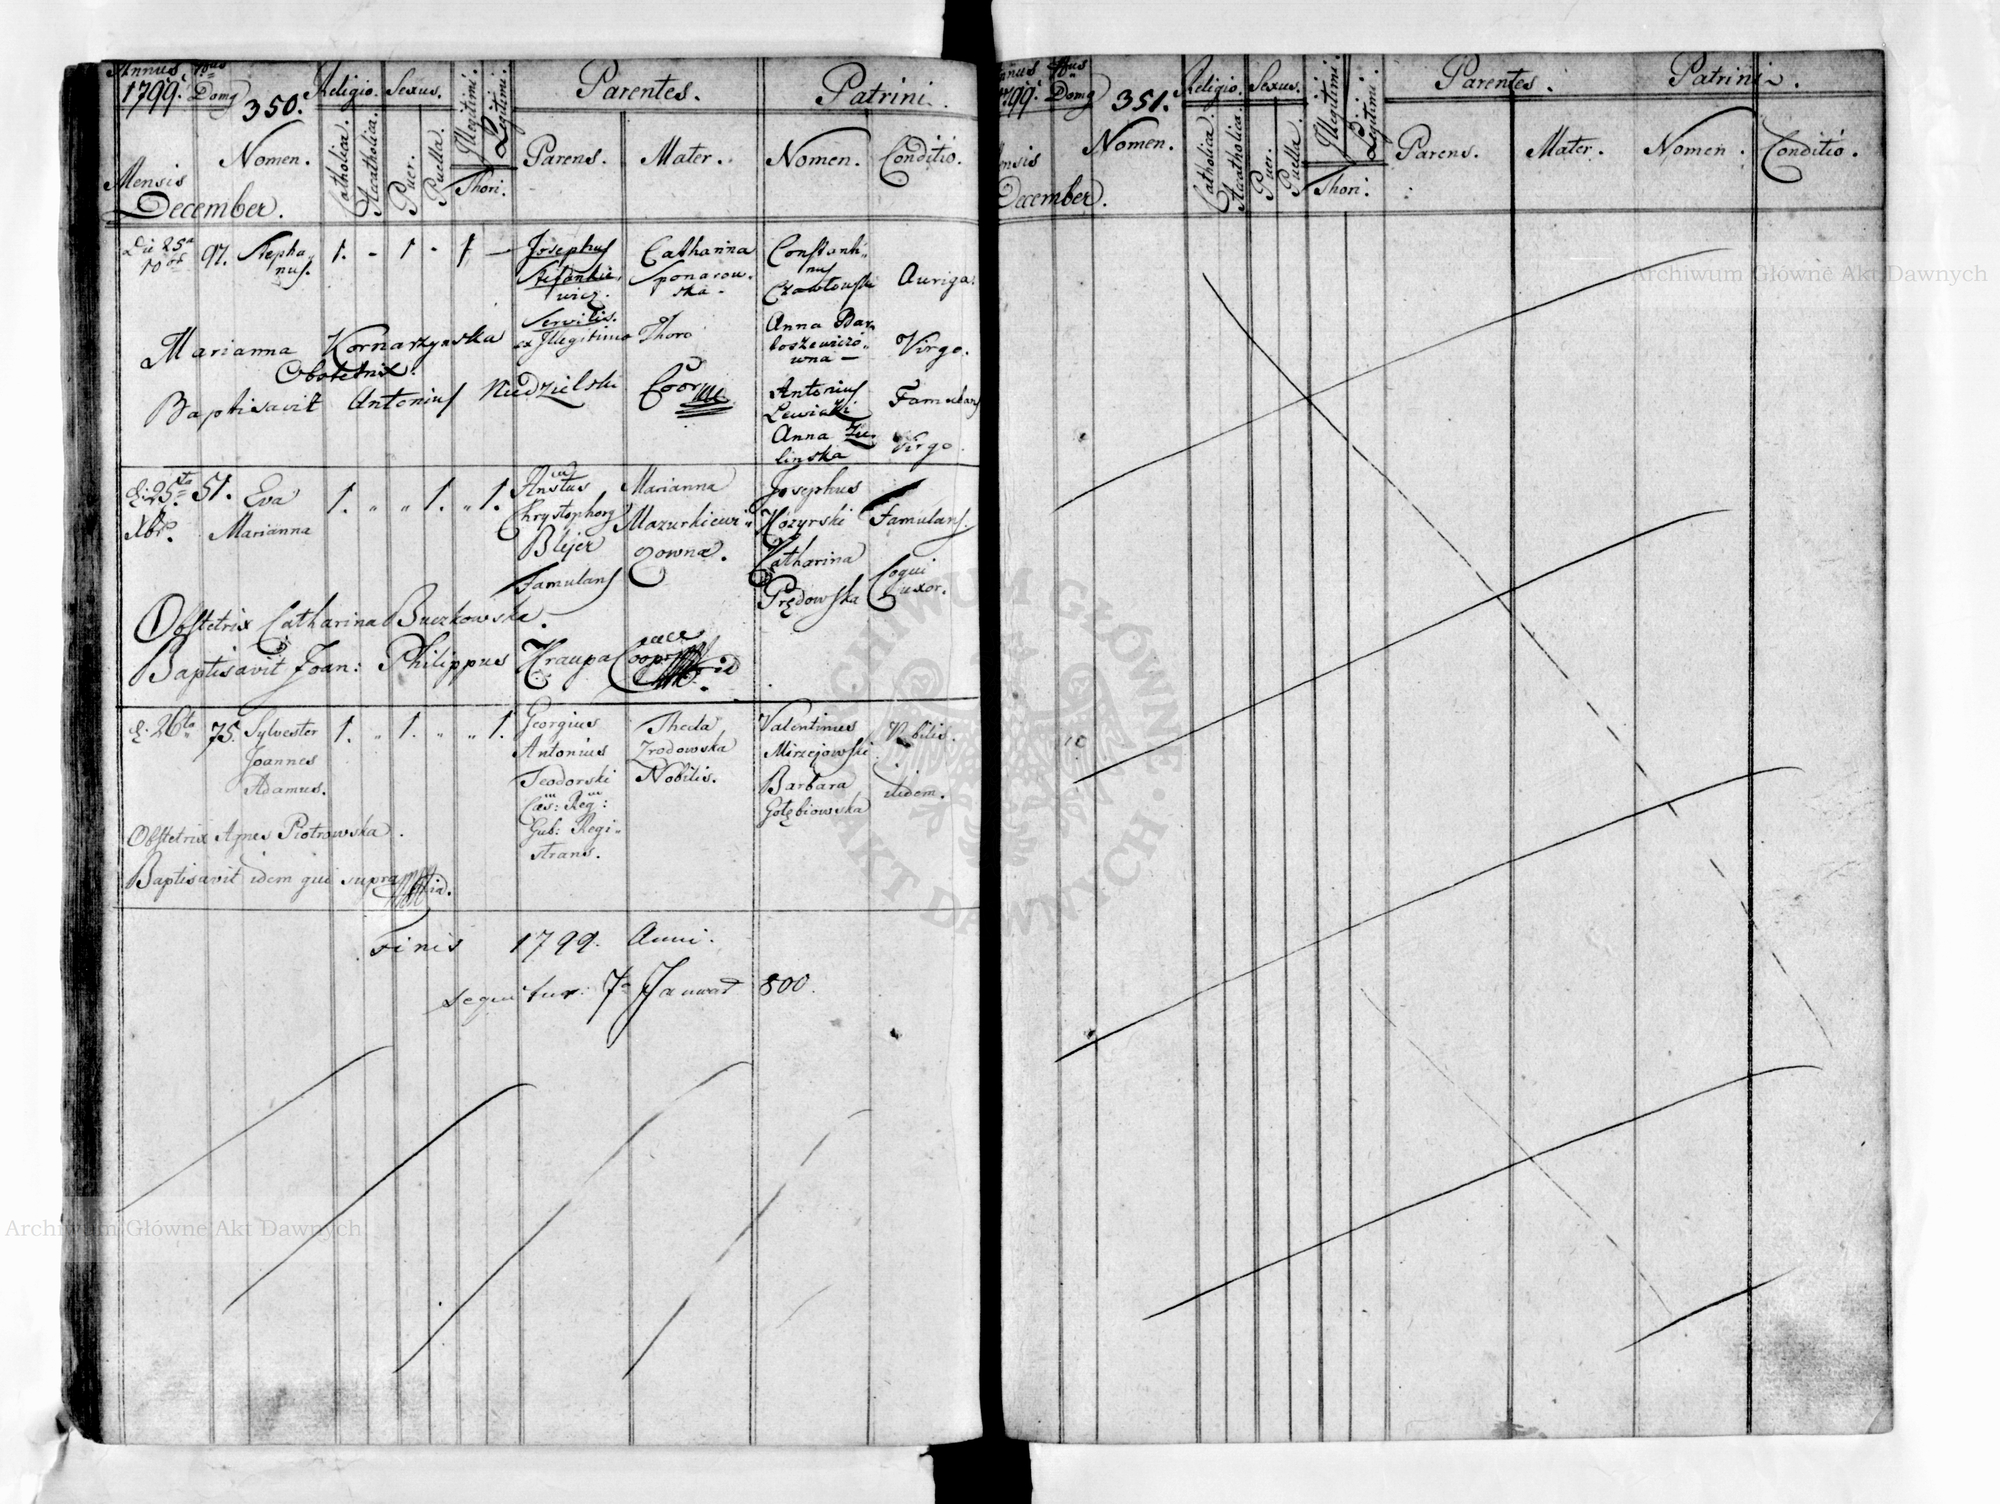 Annus 1799.
Nrus Domq
350.
Religio.
Sexus.
Illegitimi.
Legitimi.
Parentes.
Patrini.
Mensis
December.
Nomen.
Catholica.
Acatholica.
Puer.
Puella.
Thori.
Parens.
Mater.
Nomen.
Conditio.
Die 25a
10bris
97.
Stepha-
nus.
1. - 1 - 1 —
Josephus
Stefankie
wicz.
Servilis.
ex Illegitimo Thoro
Catharina
Sponarow-
ska.
Constanti-
nus
Czawłouski
Auriga.
Anna Bar-
toszewiczo-
wna —
Virgo.
Antonius
Lewicki
Famulans
Anna Zie-
linska
Virgo
Marianna Kornarzynska
Obstetrix.
Baptisavit Antonius Niedzielski Coor
d. 25ta
Xbr.
51.
Eva
Marianna
1. " " 1. " 1.
Chrystophorq
Blejer
Famulans
Marianna
Mazurkiewi-
czowna.
Josephus
Kozyrski
Famulans.
Catharina
Prędowska
Coqui
uxor.
Obstetrix Catharina Buczkowska.
Baptisavit Joan: Philippus Kraupa
d. 26ta
75.
Sylvester
Joannes
Adamus.
1. " 1. " " 1.
Georgius
Antonius
Teodorski
Cæs: Reg:
Gub: Regi-
strans.
Thecla
Zrodowska
Nobilis.
Valentinus
Mirzejowski
Nobilis.
Barbara
Gołębiowska
itidem.
Obstetrix Agnes Piotrowska.
Baptisavit idem qui supra
Finis 1799. Anni.
sequitur: 7a Januar 800.
Annus 1799.
Nrus Domq
351.
Religio.
Sexus.
Illegitimi.
Legitimi.
Parentes.
Patrini.
Mensis
December.
Nomen.
Catholica.
Acatholica.
Puer.
Puella.
Thori.
Parens.
Mater.
Nomen.
Conditio.
Archiwum Główne Akt Dawnych
Archiwum Główne Akt Dawnych
ARCHIWUM GŁÓWNE AKT DAWNYCH